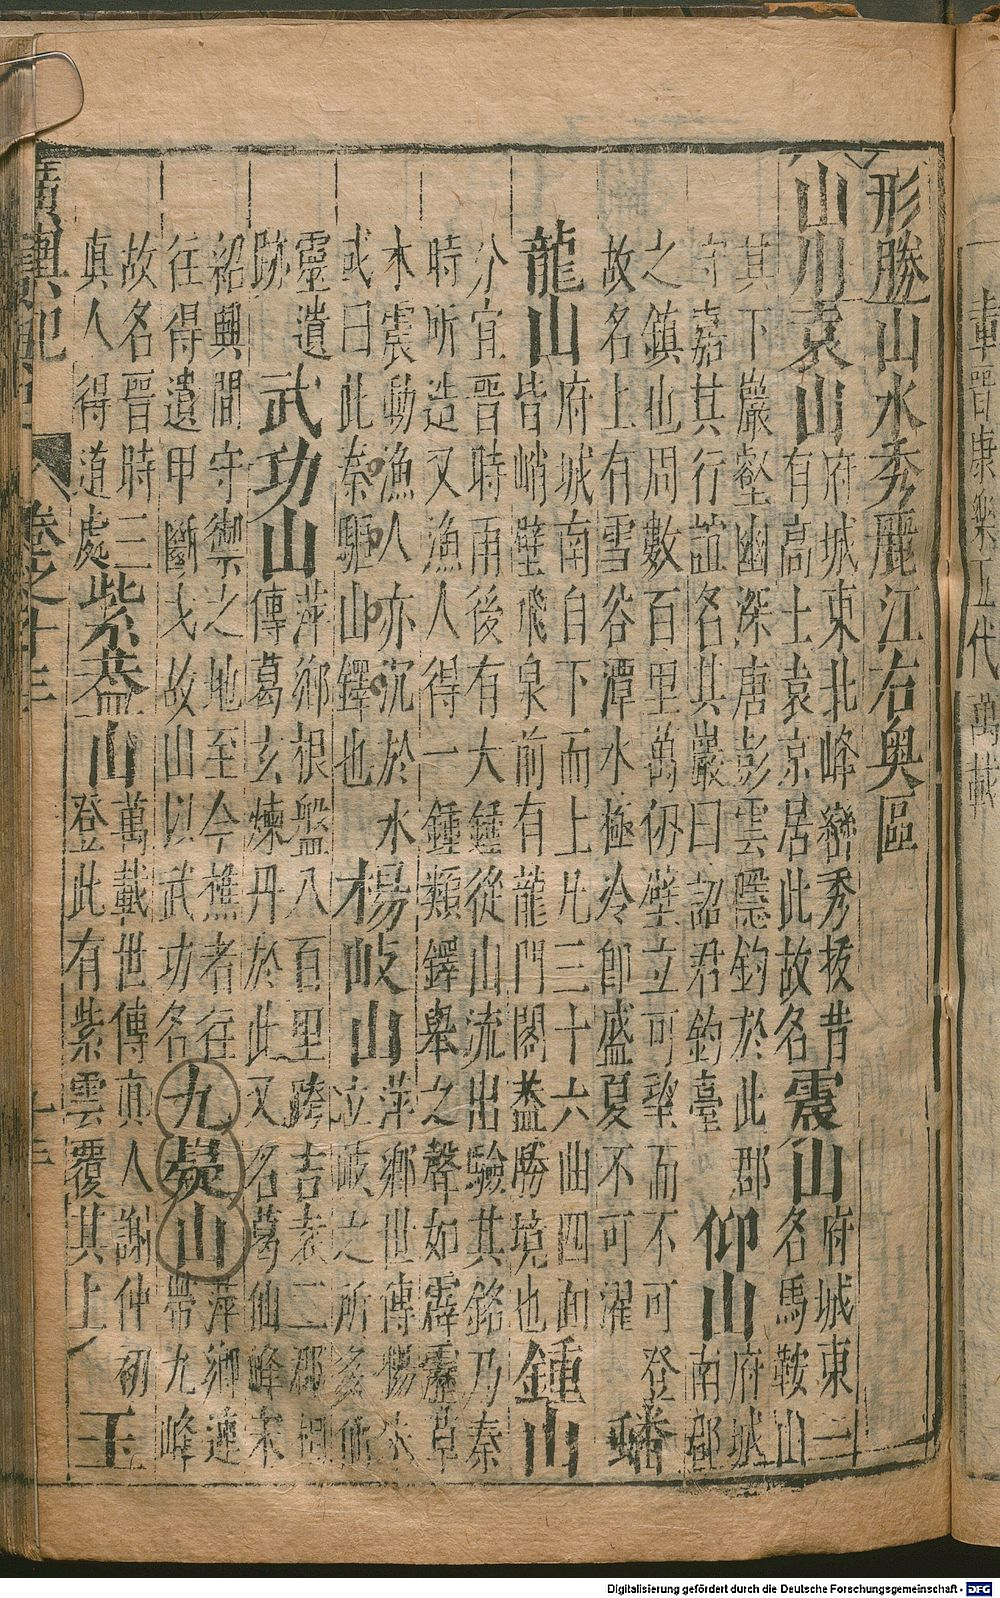 一章晋康樂五代萬載
形勝山水秀麗江右奥區
山川袁山
府城東北峰巒秀拔昔
有高士袁京居此故名
震山
府城東二
名馬鞍山
其下巖壑幽深唐彭雲隱釣於此郡
守嘉其行誼名其巖曰詔君釣臺
仰山
府城
南部
之鎮也周數百里萬仞壁立可望而不可登
故名上有雪谷潭水極冷即盛夏不可濯
蟠
龍山
府城南自下而上凡三十六曲四面
皆峭壁飛泉前有龍門閣葢勝境也
鍾山
分宜晋時雨後有大鍾從山流出驗其銘乃秦
時所造又漁人得一鍾類鐸舉之聲如霹靂草
木震動漁人亦沉於水
或曰此秦驅山鐸也
楊岐山
萍鄉世傳楊朱
泣岐之所多仙
靈遺
跡
武功山
萍鄉根盤八百里跨吉袁二郡相
傳葛玄煉丹於此又名葛仙峰宋
紹興間守禦之地至今樵者往
往得遺甲斷戈故山以武功名
九嶷山
萍鄉連
帶九峰
故名晋時三
真人得道處
紫葢山
萬載世傳真人謝仲初
登此有紫雲覆其上
玉
廣輿記 卷之十三 十三
Digitalisierung gefördert durch die Deutsche Forschungsgemeinschaft - DFG